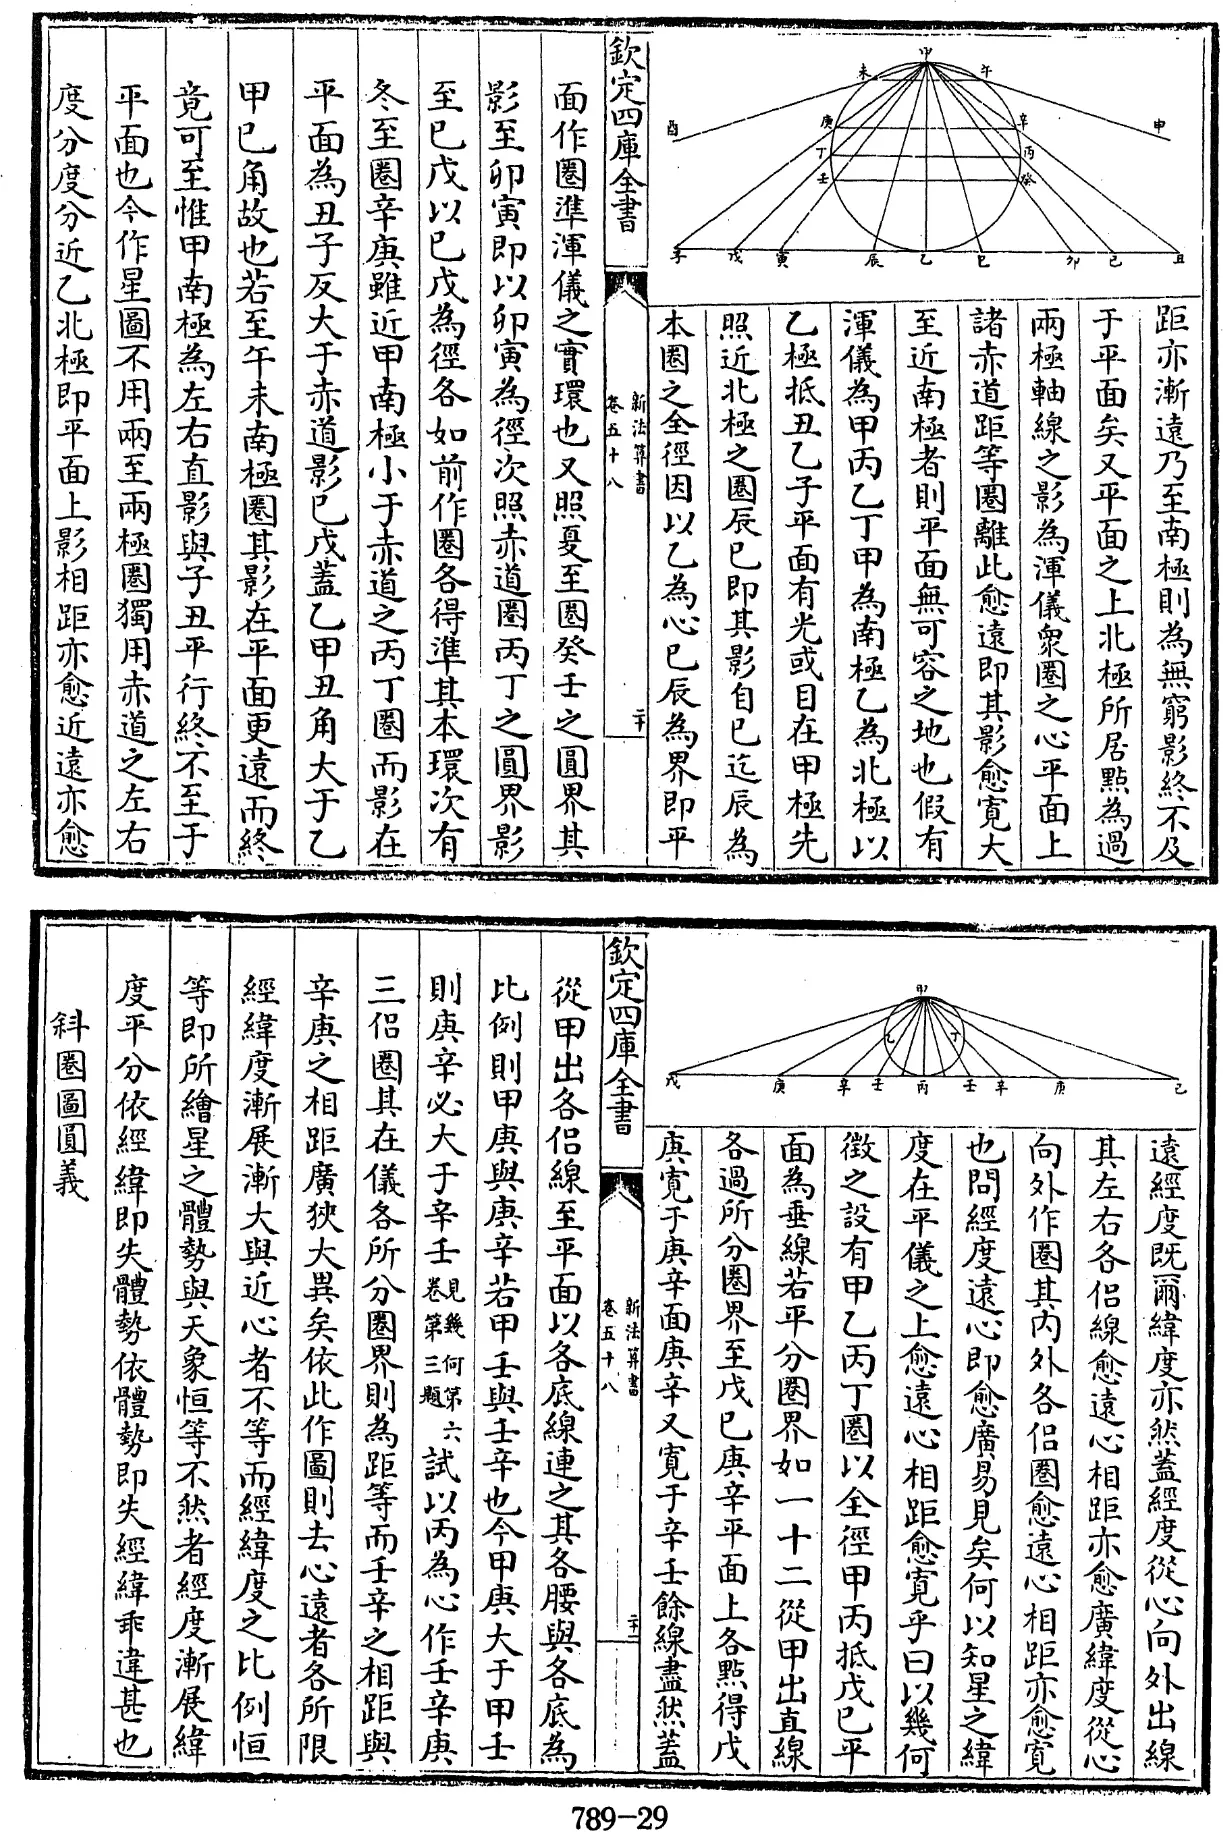 甲
未
午
酉
申
庚
辛
丁
丙
壬
癸
子
戊
寅
辰
乙
巳
卯
己
丑
距亦漸遠乃至南極則為無窮影終不及
于平面矣又平面之上北極所居㸃為過
兩極軸線之影為渾儀衆圈之心平面上
諸赤道距等圈離此愈遠即其影愈寛大
至近南極者則平面無可容之地也假有
渾儀為甲丙乙丁甲為南極乙為北極以
乙極抵丑乙子平面有光或目在甲極先
照近北極之圈辰巳即其影自巳迄辰為
本圈之全徑因以乙為心巳辰為界即平
欽定四庫全書
新法算書
卷五十八
二十
面作圈準渾儀之實環也又照夏至圈癸壬之圓界其
影至卯寅即以卯寅為徑次照赤道圈丙丁之圓界影
至已戊以已戊為徑各如前作圈各得準其本環次有
冬至圈辛庚雖近甲南極小于赤道之丙丁圈而影在
平面為丑子反大于赤道影已戊蓋乙甲丑角大于乙
甲已角故也若至午未南極圈其影在平面更遠而終
竟可至惟甲南極為左右直影與子丑平行終不至于
平面也今作星圖不用兩至兩極圈獨用赤道之左右
度分度分近乙北極即平面上影相距亦愈近遠亦愈
甲
乙
丁
戊
庚
辛
壬
丙
壬
辛
庚
己
遠經度既爾緯度亦然蓋經度從心向外出線
其左右各侣線愈遠心相距亦愈廣緯度從心
向外作圈其内外各侣圈愈遠心相距亦愈寛
也問經度遠心即愈廣易見矣何以知星之緯
度在平儀之上愈遠心相距愈寛乎曰以幾何
徴之設有甲乙丙丁圈以全徑甲丙抵戊已平
面為垂線若平分圈界如一十二從甲出直線
各過所分圈界至戊已庚辛平面上各㸃得戊
庚寛于庚辛面庚辛又寛于辛壬餘線盡然蓋
欽定四庫全書
新法算書
卷五十八
二十一
從甲出各侣線至平面以各底線連之其各腰與各底為
比例則甲庚與庚辛若甲壬與壬辛也今甲庚大于甲壬
則庚辛必大于辛壬見幾何第六卷第三題試以丙為心作壬辛庚
三侣圈其在儀各所分圈界則為距等而壬辛之相距與
辛庚之相距廣狹大異矣依此作圖則去心遠者各所限
經緯度漸展漸大與近心者不等而經緯度之比例恒
等即所繪星之體勢與天象恒等不然者經度漸展緯
度平分依經緯即失體勢依體勢即失經緯乖違甚也
斜圈圖圓義
789-29